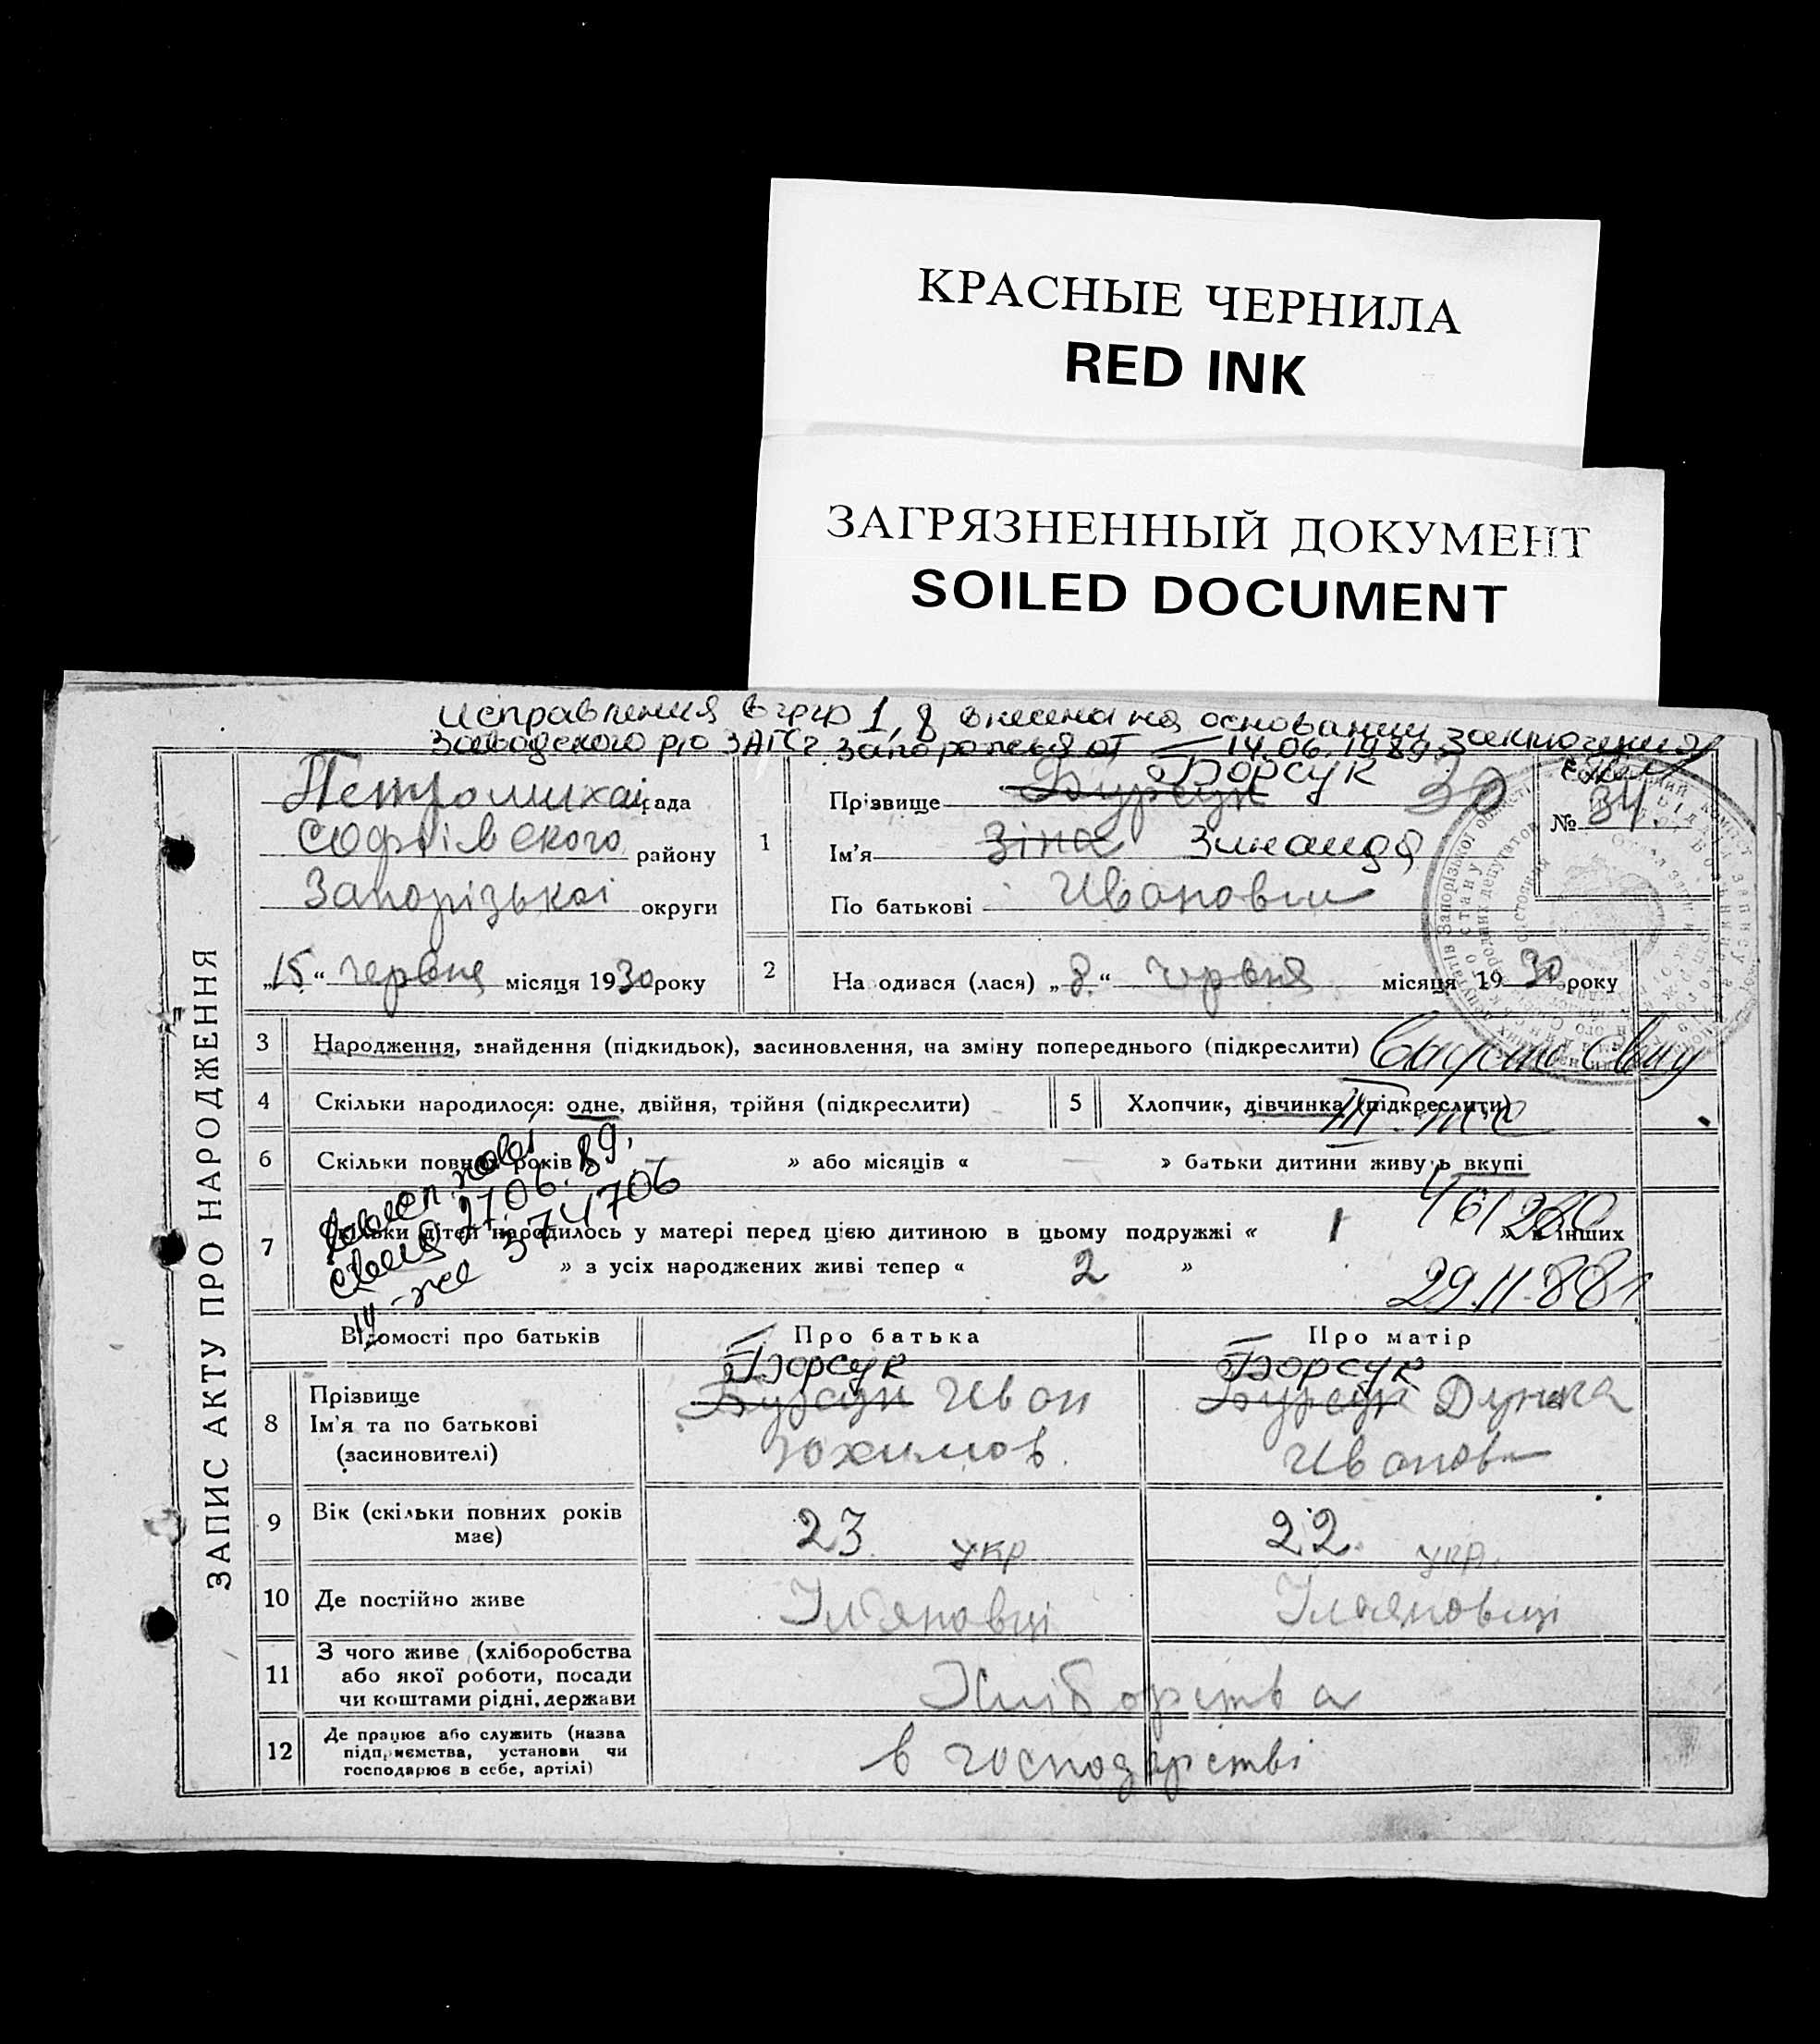 КРАСНЫЕ ЧЕРНИЛА
RED INK
ЗАГРЯЗНЕННЫЙ ДОКУМЕНТ
SOILED DOCUMENT
Исправления в гр гр 1, 8 внесена на основании заключения
Заводского р/о ЗАГС г Запорожья от 14.06.1989
ЗАПИС АКТУ ПРО НАРОДЖЕННЯ
Петромихай рада
Софіівского району
Запорізької округи
„15“ червня місяця 1930 року
1
Прізвище Бурсук Борсук 30
Ім'я Зіна Зинаида
По батькові Ивановн
№ 34
2 На одився (лася) „8“ червня місяця 1930 року
3 Народження, знайдення (підкидьок), засиновлення, на зміну попереднього (підкреслити)
4 Скільки народилося: одне, двійня, трійня (підкреслити)
5 Хлопчик, дівчинка (підкреслити)
6 Скільки повних років — » або місяців « — » батьки дитини живуть вкупі
7 Скільки дітей народилось у матері перед цією дитиною в цьому подружжі « 1 » в інших
» з усіх народжених живі тепер « 2 »
27.06.89
374706
461260
29.11.88
Відомості про батьків Про батька Про матір
8 Прізвище
Ім'я та по батькові
(засиновителі)
Борсук
Бурсук Иван
Юхимов
Борсук
Бурсук Дунка
Иванов
9 Вік (скільки повних років має) 23 укр 22 укр.
10 Де постійно живе Ул'яновці Ул'яновці
11 З чого живе (хліборобства
або якої роботи, посади
чи коштами рідні, держави
Хліборітва
12 Де працює або служить (назва
підприємства, установи чи
господарює в себе, артілі)
в господарстві